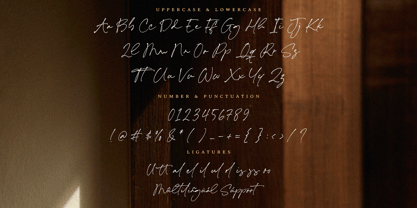 UPPERCASE & LOWERCASE
Aa Bb Cc Dd Ee Ff Gg Hh Ii Jj Kk
Ll Mm Nn Oo Pp Qq Rr Ss
Tt Uu Vv Ww Xx Yy Zz
NUMBER & PUNCTUATION
0123456789
( @ # $ % & * ( ) _ - + = { } : < > / ?
LIGATURES
Multilingual Support